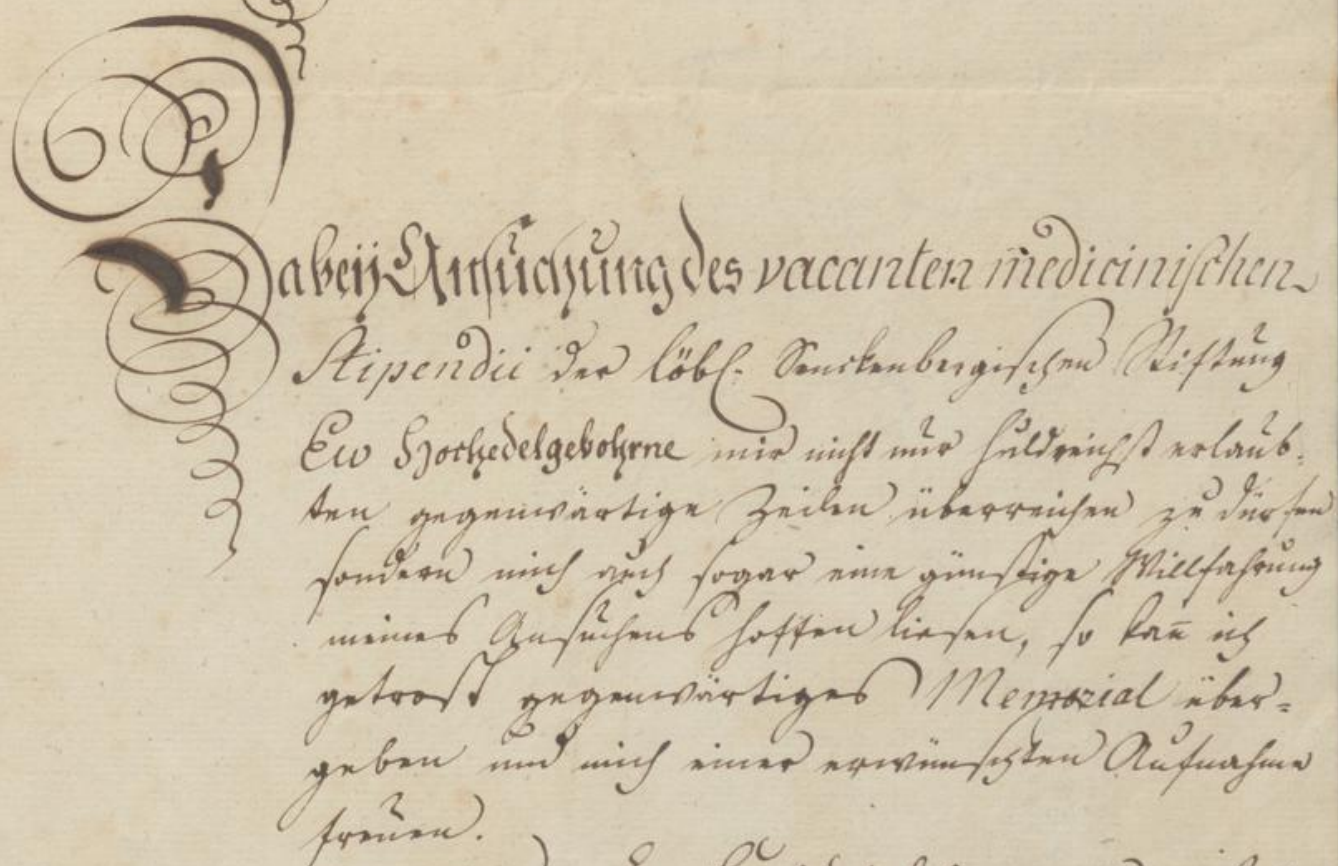 Da beÿ Ansuchung des vacanten medicinischen
Stipendii der löbl. Senckenbergischen Stiftung
Ew Hochedelgebohrne mir nicht nur huldreichst erlaub-
ten gegenwärtige Zeilen überreichen zu dürfen
sondern mich auch sogar eine günstige Willfahrung
meines Ansuchens hoffen liesen, so kan̅ ich
getrost gegenwärtiges Memorial über-
geben und mich einer erwünschten Aufnahme
freuen.